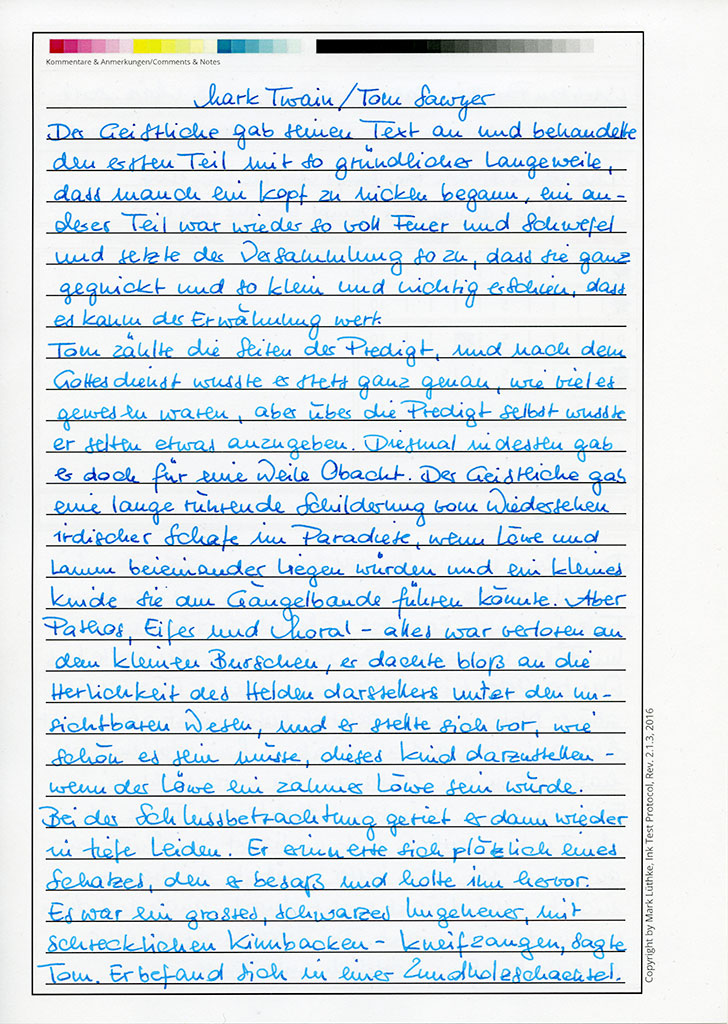 Kommentare & Anmerkungen/Comments & Notes
Mark Twain / Tom Sawyer
Der Geistliche gab seinen Text an und behandelte
den ersten Teil mit so gründlicher Langeweile,
dass manch ein Kopf zu nicken begann, ein an-
derer Teil war wieder so voll Feuer und Schwefel
und setzte der Versammlung so zu, dass sie ganz
geqnickt und so klein und nichtig erschien, dass
es kaum der Erwähnung wert.
Tom zählte die Seiten der Predigt, und nach dem
Gottesdienst wusste er stets ganz genau, wie viel es
gewesen waren, aber über die Predigt selbst wusste
er selten etwas anzugeben. Diesmal indessen gab
er doch für eine Weile Obacht. Der Geistliche gab
eine lange rührende Schilderung vom Wiedersehen
irdischer Schafe im Paradiese, wenn Löwe und
Lamm beieinander liegen würden und ein kleines
Kinde sie am Gängelbande führen könnte. Aber
Pathos, Eifer und Moral - alles war verloren an
dem kleinen Burschen, er dachte bloß an die
Herlichkeit des Helden darstellers unter den un-
sichtbaren Wesen, und er stellte sich vor, wie
schön es sein müsse, dieses Kind darzustellen -
wenn der Löwe ein zahmer Löwe sein würde.
Bei der Schlussbetrachtung geriet er dann wieder
in tiefe Leiden. Er erinnerte sich plötzlich eines
Schatzes, den er besaß und holte ihn hervor.
Es war ein grosses, schwarzes Ungeheuer, mit
schrecklichen Kinnbacken - Kneifzangen, sagte
Tom. Er befand sich in einer Zundholzschachtel.
Copyright by Mark Lüthke, Ink Test Protocol, Rev. 2.1.3, 2016